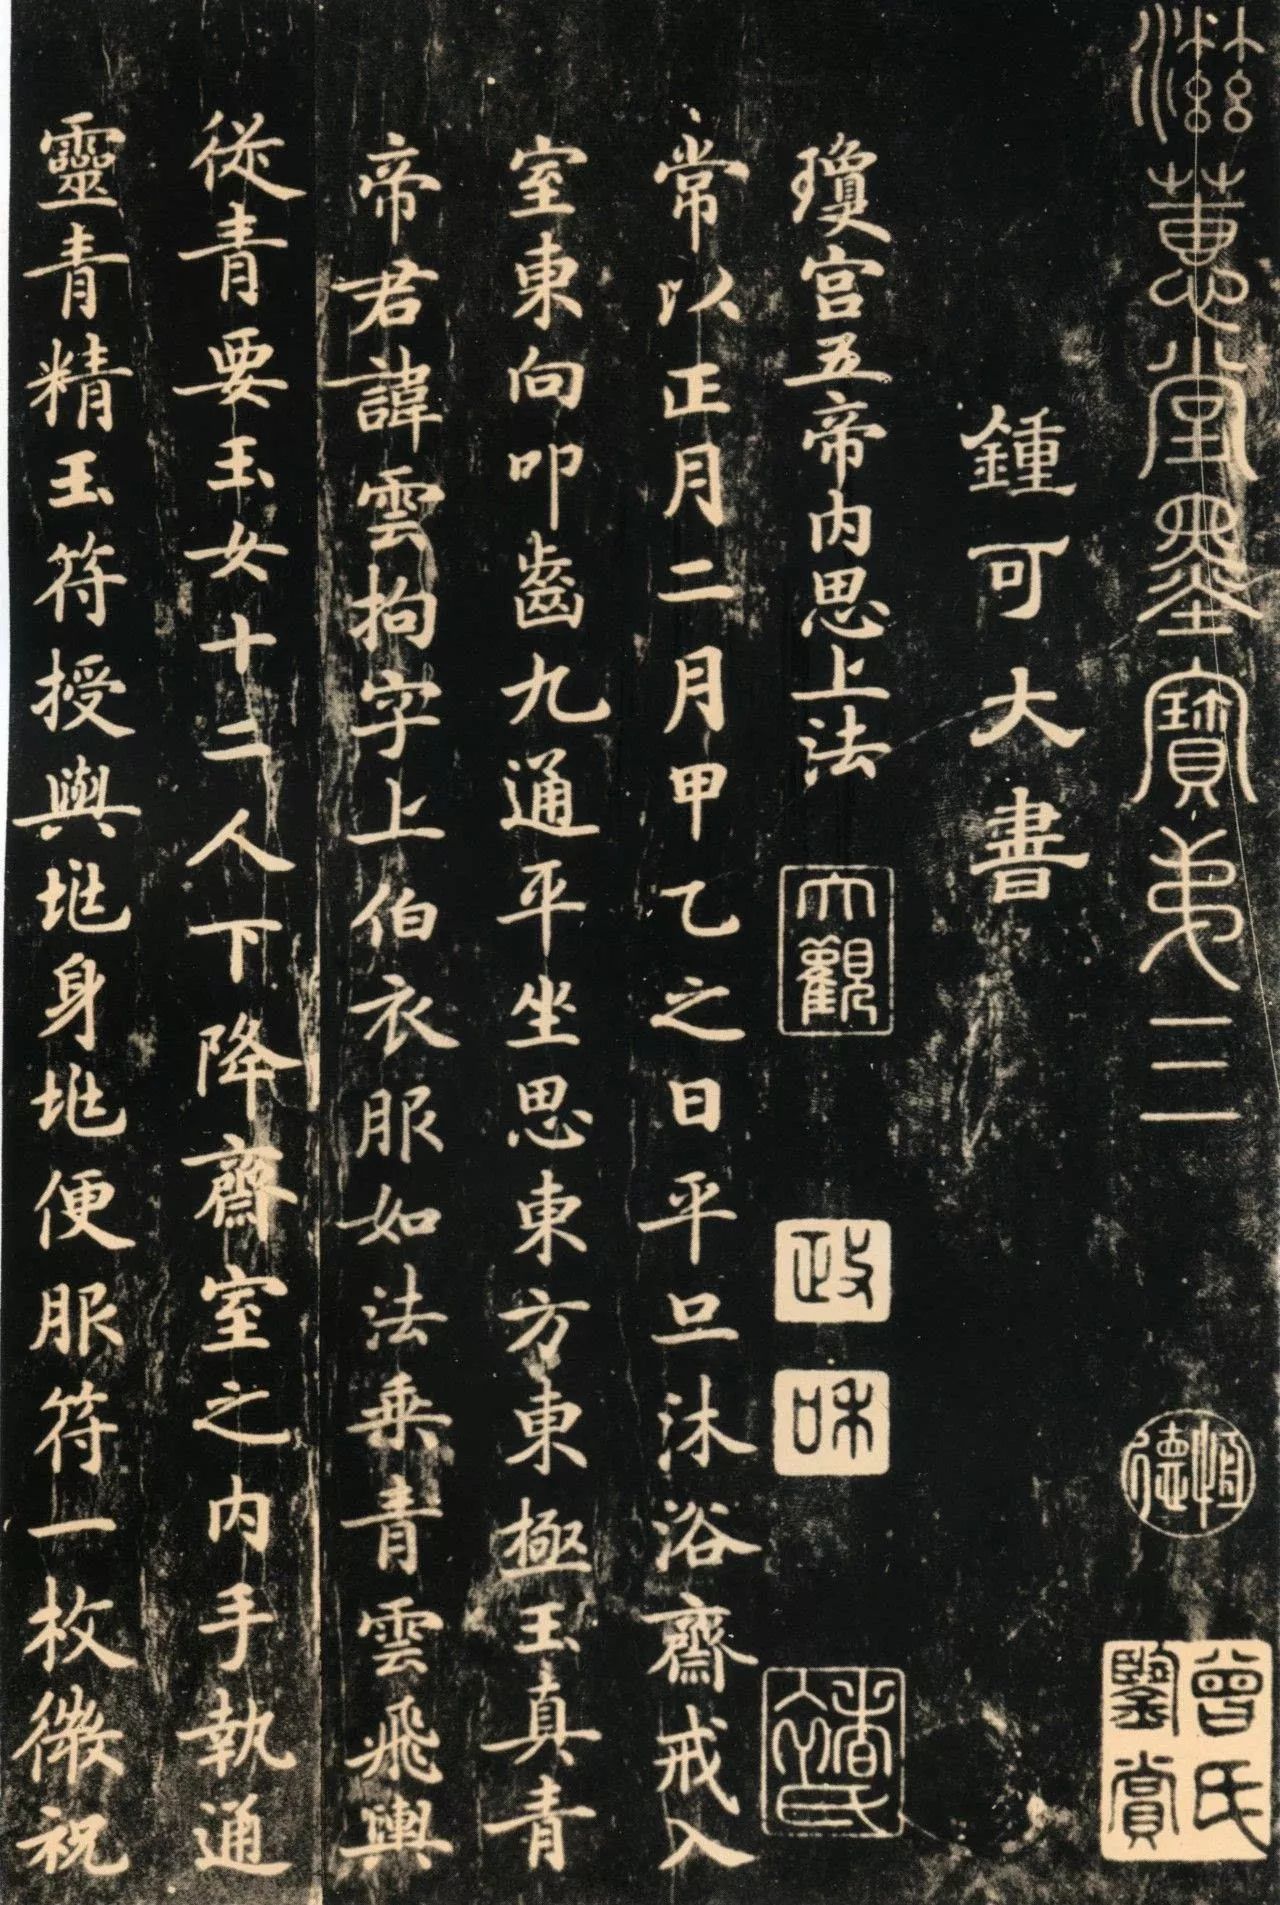 滋蕙堂墨寶弟三
恒德
曾氏鑒賞
鍾可大書
瓊宮五帝內思上法
大觀
政
和
常以正月二月甲乙之日平旦沐浴齋戒入
室東向叩齒九通平坐思東方東極玉真青
帝君諱雲拘字上伯衣服如法乘青雲飛輿
從青要玉女十二人下降齋室之內手執通
靈青精玉符授與地身地便服符一枚微祝